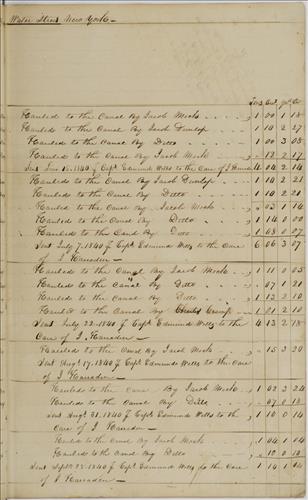 Water Street New York
Tons Cwt Qrs lbs
Hauled to the Canal By Jacob Mock 1 00 1 18
Hauled to the Canal By Jacob Dunlop 1 10 2 27
Hauled to the Canal By Ditto 1 00 3 08
Hauled to the Canal By Jacob Mock 12 2 17
Sent June 15. 1840 Capt Edmund Wills to the Care of J 4 04 2 14
Hauled to the Canal By Jacob Dunlop 1 10 2 21
Hauled to the Canal By Ditto 1 10 2 21
Hauled to the Canal By Jacob Mock 03 1 14
Hauled to the Canal By Ditto 1 14 0 00
Hauled to the Canal By Ditto 1 08 0 27
Sent July 7. 1840 Capt Edmund Wills to the Care 6 06 3 07
of J
Hauled to the Canal By Jacob Mock 1 11 0 05
Hauled to the Canal By Ditto 1 07 1 21
Hauled to the Canal By Ditto 1 13 2 10
Hauled to the Canal By 1 01 2 10
Sent July 22. 1840 Capt Edmund Wills to the 4 13 2 18
Care of J
Hauled to the Canal By Jacob Mock 15 3 20
Sent Augt 17. 1840 Capt Edmund Wills to the Care
of J
Hauled to the Canal By Jacob Mock 1 02 2 24
Hauled to the Canal By Ditto 07 0 18
Sent Augt 31. 1840 Capt Edmund Wills to the 1 10 0 14
Care of J
Hauled to the Canal By Jacob Mock 1 04 1 04
Hauled to the Canal By Ditto 10 0 10
Sent Sept 22. 1840 Capt Edmund Wills to the Care 1 14 1 14
of J